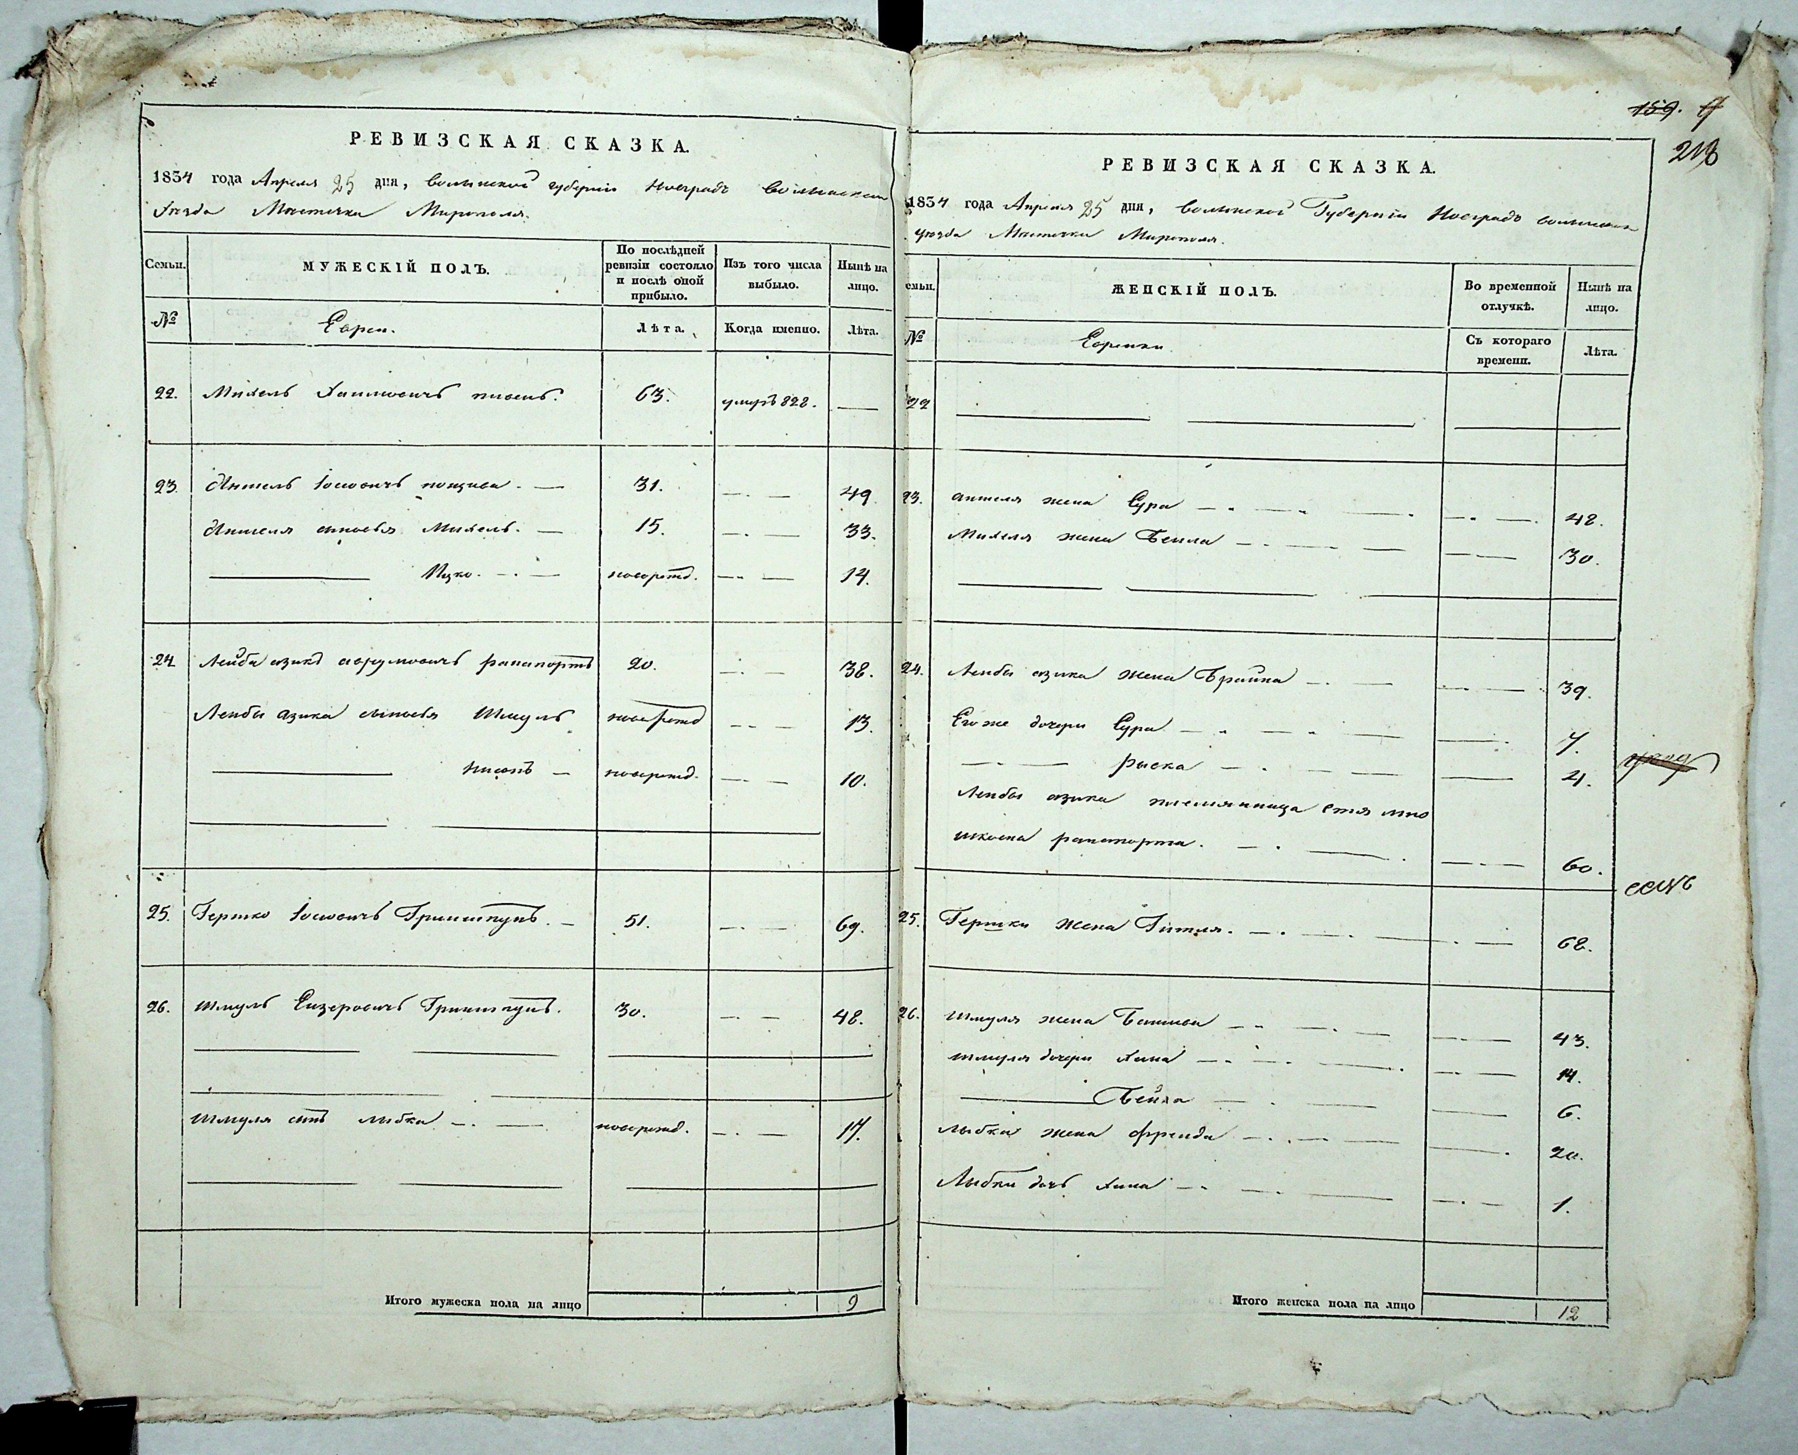 159.
213
РЕВИЗСКАЯ СКАЗКА.
1834 года Апреля 25 дня, Волынской губернии Новградъ Волынскаго
уѣзда Мѣстечка Мирополя.
Семьи. МУЖЕСКІЙ ПОЛЪ. По послѣдней ревизіи состояло и послѣ оной прибыло. Изъ того числа выбыло. Нынѣ на лицо.
№ Евреи. Лѣта. Когда именно. Лѣта.
22. Михель Хаимовичъ 63. умеръ 828. —
23. Аншель Iосиовичъ 31. 49
Аншеля сыновья Михель. 15. 33.
Ицко. новорожд. 14.
24 Лейба азикъ аврумовичъ рапапортъ 20. 38.
Лейбы азика сыновья Шмуль новорожд 13.
Нисонъ новорожд. 10.
25. Гершко Iосиовичъ Гринштупъ. 51. 69.
26. Шмуль Ейзеровичъ Гринштупъ. 30. 48.
Шмуля сынъ Лыбка новорожд. 17.
Итого мужеска пола на лицо 9
РЕВИЗСКАЯ СКАЗКА.
1834 года Апреля 25 дня, Волынской Губерніи Новградъ волынскаго
уѣзда Мѣстечка Мирополя.
Семьи. ЖЕНСКІЙ ПОЛЪ. Во временной отлучкѣ. Нынѣ на лицо.
№ Еврейки Съ котораго времени. Лѣта.
22
23. аншеля жена Сура 48.
Михеля жена Бейла 30.
24. Лейбы азика жена Брайна 39.
Его же дочери Сура 7.
рыска 4.
Лейбы азика племянница
рапапорта. 60.
25. Гершки жена Гитля. 68.
26. Шмуля жена 43.
шмуля дочери Хана 14.
Бейла 6.
Лыбки жена Фрейда 20.
Лыбки дочь Хана 1.
Итого женска пола на лицо 12